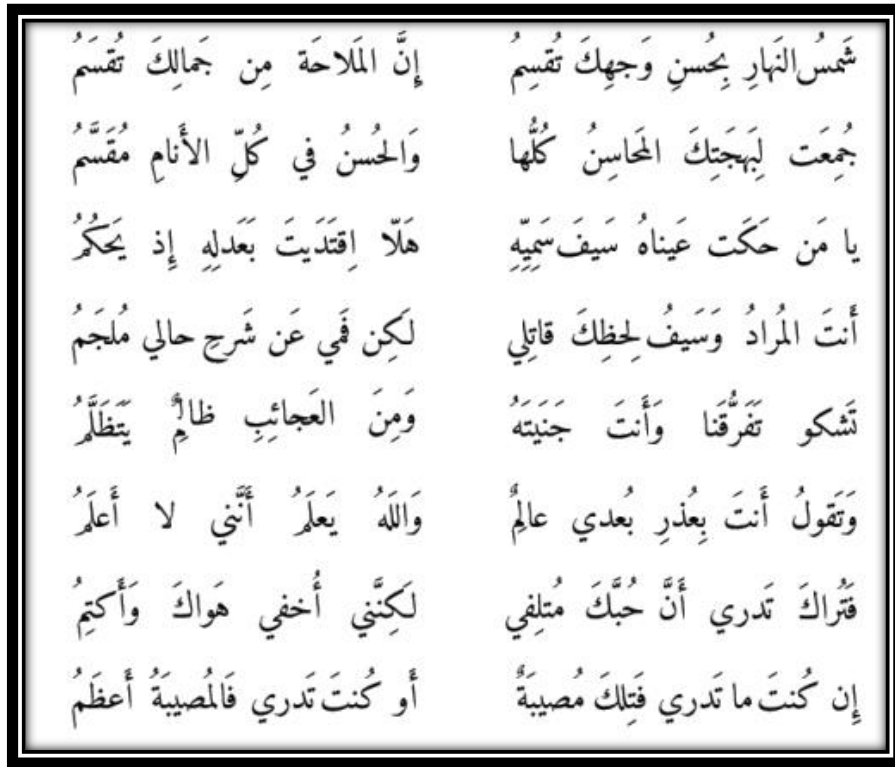 شَمسُ النَهارِ بِحُسنِ وَجهِكَ تُقسِمُ إِنَّ المَلاحَة مِن جَمالِكَ تُقسَمُ
جُمِعَت لِبَهجَتِكَ المَحاسِنُ كُلُّها وَالحُسنُ في كُلِّ الأَنامِ مُقَسَّمُ
يا مَن حَكَت عَيناهُ سَيفَ سَمِيِّهِ هَلّا اِقتَدَيتَ بَعَدلِهِ إِذ يَحكُمُ
أَنتَ المُرادُ وَسَيفُ لِحظِكَ قاتِلي لَكِن فَمي عَن شَرحِ حالي مُلجَمُ
تَشكو تَفَرُّقَنا وَأَنتَ جَنَيتَهُ وَمِنَ العَجائِبِ ظالِمٌ يَتَظَلَّمُ
وَتَقولُ أَنتَ بِعُذرِ بُعدي عالِمٌ وَاللَهُ يَعلَمُ أَنَّني لا أَعلَمُ
فَتُراكَ تَدري أَنَّ حُبَّكَ مُتلِفي لَكِنَّني أُخفي هَواكَ وَأَكتِمُ
إِن كُنتَ ما تَدري فَتِلكَ مُصيبَةٌ أَو كُنتَ تَدري فَالمُصيبَةُ أَعظَمُ